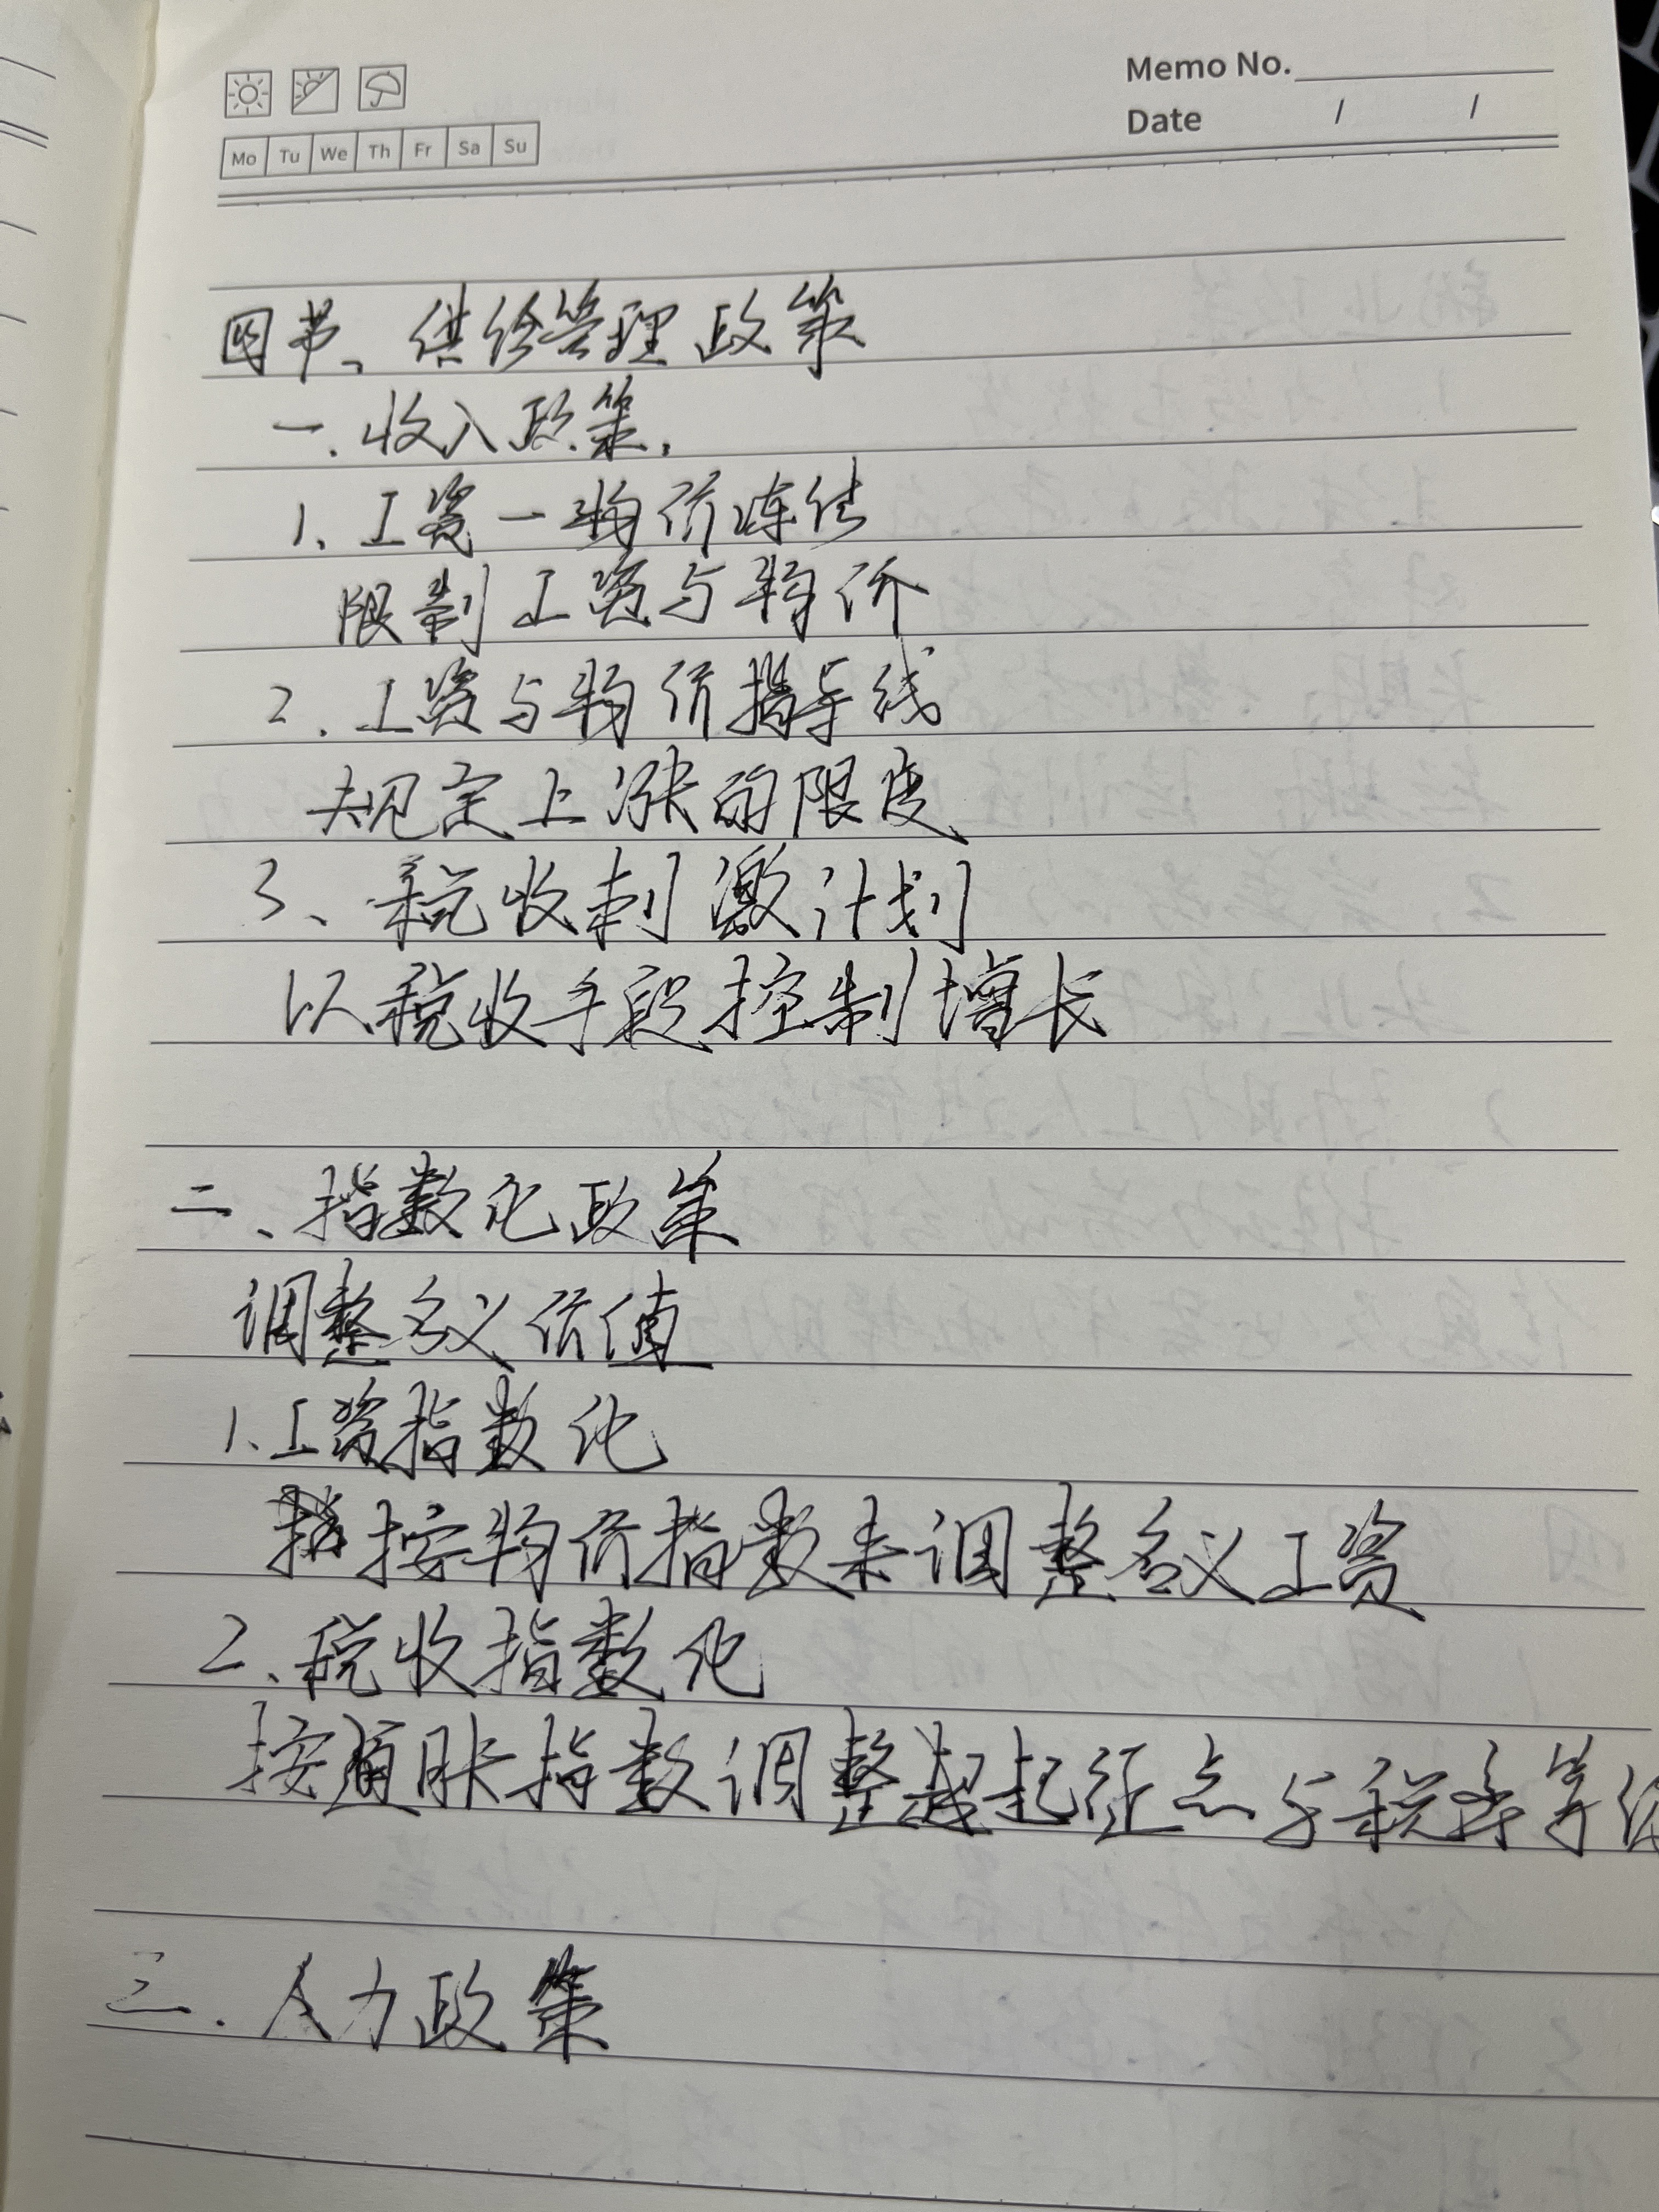 Memo No.
Date / /
Mo Tu We Th Fr Sa Su
四节、供给管理政策
一.收入政策.
1、工资一物价冻结
限制工资与物价
2.工资与物价指导线
规定上涨的限度
3、税收刺激计划
以税收手段控制增长
二、指数化政策
调整名义价值
1、工资指数化
按物价指数来调整名义工资
2、税收指数化
按通胀指数调整起征点与税率等级
三.人力政策